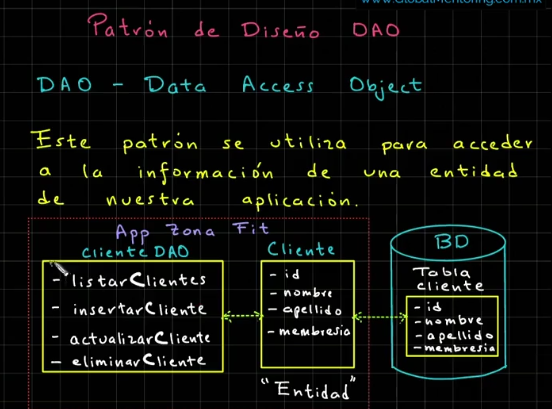 www.GlobalMentoring.com.mx
Patrón de Diseño DAO
DAO - Data Access Object
Este patrón se utiliza para acceder
a la información de una entidad
de nuestra aplicación.
App Zona Fit
cliente DAO
- listarClientes
- insertarCliente
- actualizarCliente
- eliminarCliente
Cliente
- id
- nombre
- apellido
- membresia
"Entidad"
BD
Tabla
cliente
- id
- nombre
- apellido
- membresia